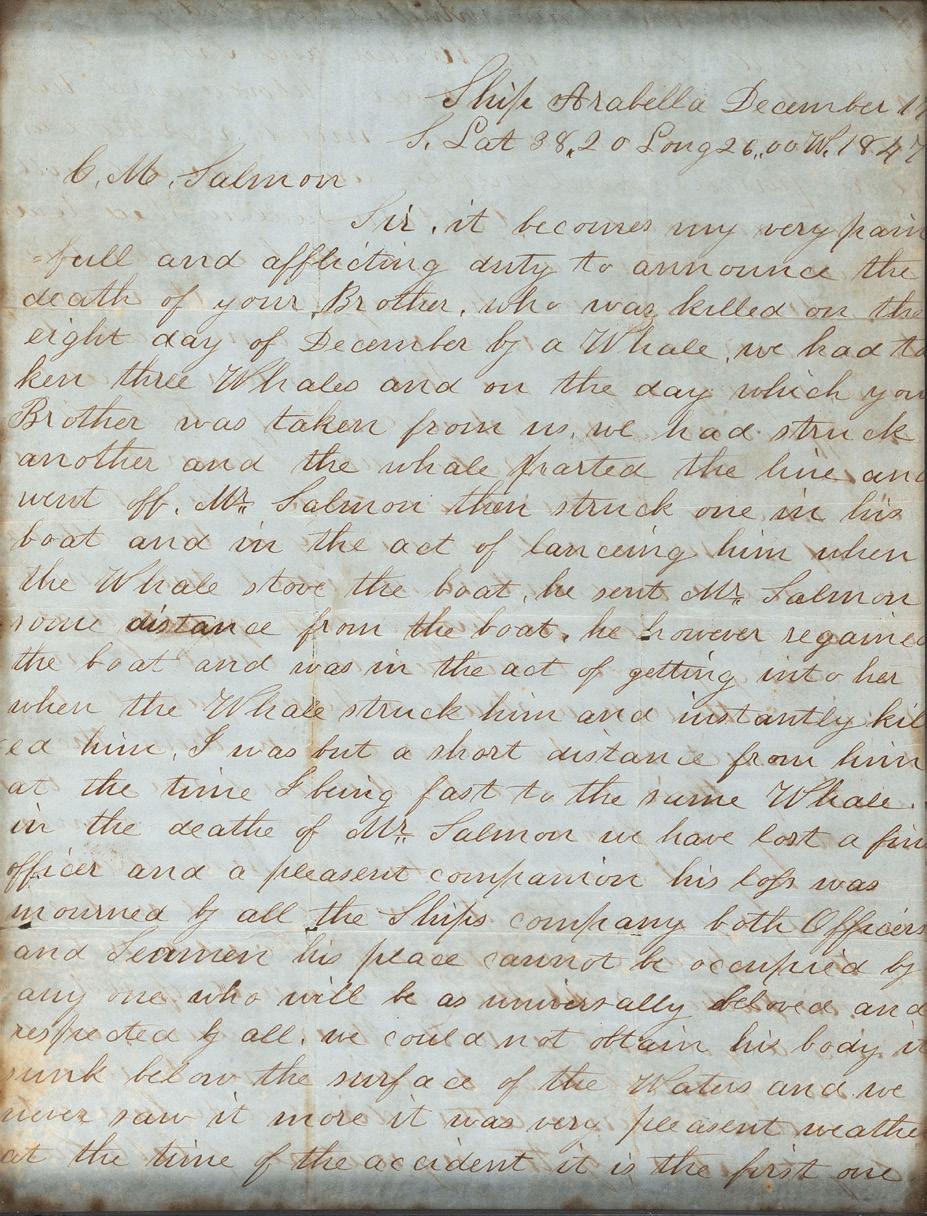 Ship Arabella December 17
S. Lat 38,,20 Long 26,,00 W. 1847
C. M. Salmon
Sir, it becomes my very pain
=full and afflicting duty to announce the
death of your Brother, who was killed on the
eight day of December by a Whale, we had ta
ken three Whales and on the day which you
Brother was taken from us, we had struck
another and the whale parted the line and
went off. Mr. Salmon then struck one in his
boat and in the act of lanceing him when
the Whale stove the boat, he sent Mr. Salmon
some distance from the boat, he however regained
the boat and was in the act of getting into her
when the Whale struck him and instantly kil
ed him, I was but a short distance from him
at the time I being fast to the same Whale.
in the deathe of Mr. Salmon we have lost a fine
officer and a pleasent companion his loss was
mourned by all the Ships company both Officers
and Seamen his place cannot be occupied by
any one who will be as universally beloved and
respected by all. we could not obtain his body, it
sunk below the surface of the Waters and we
never saw it more it was very pleasent weathe
at the time of the accident it is the first one